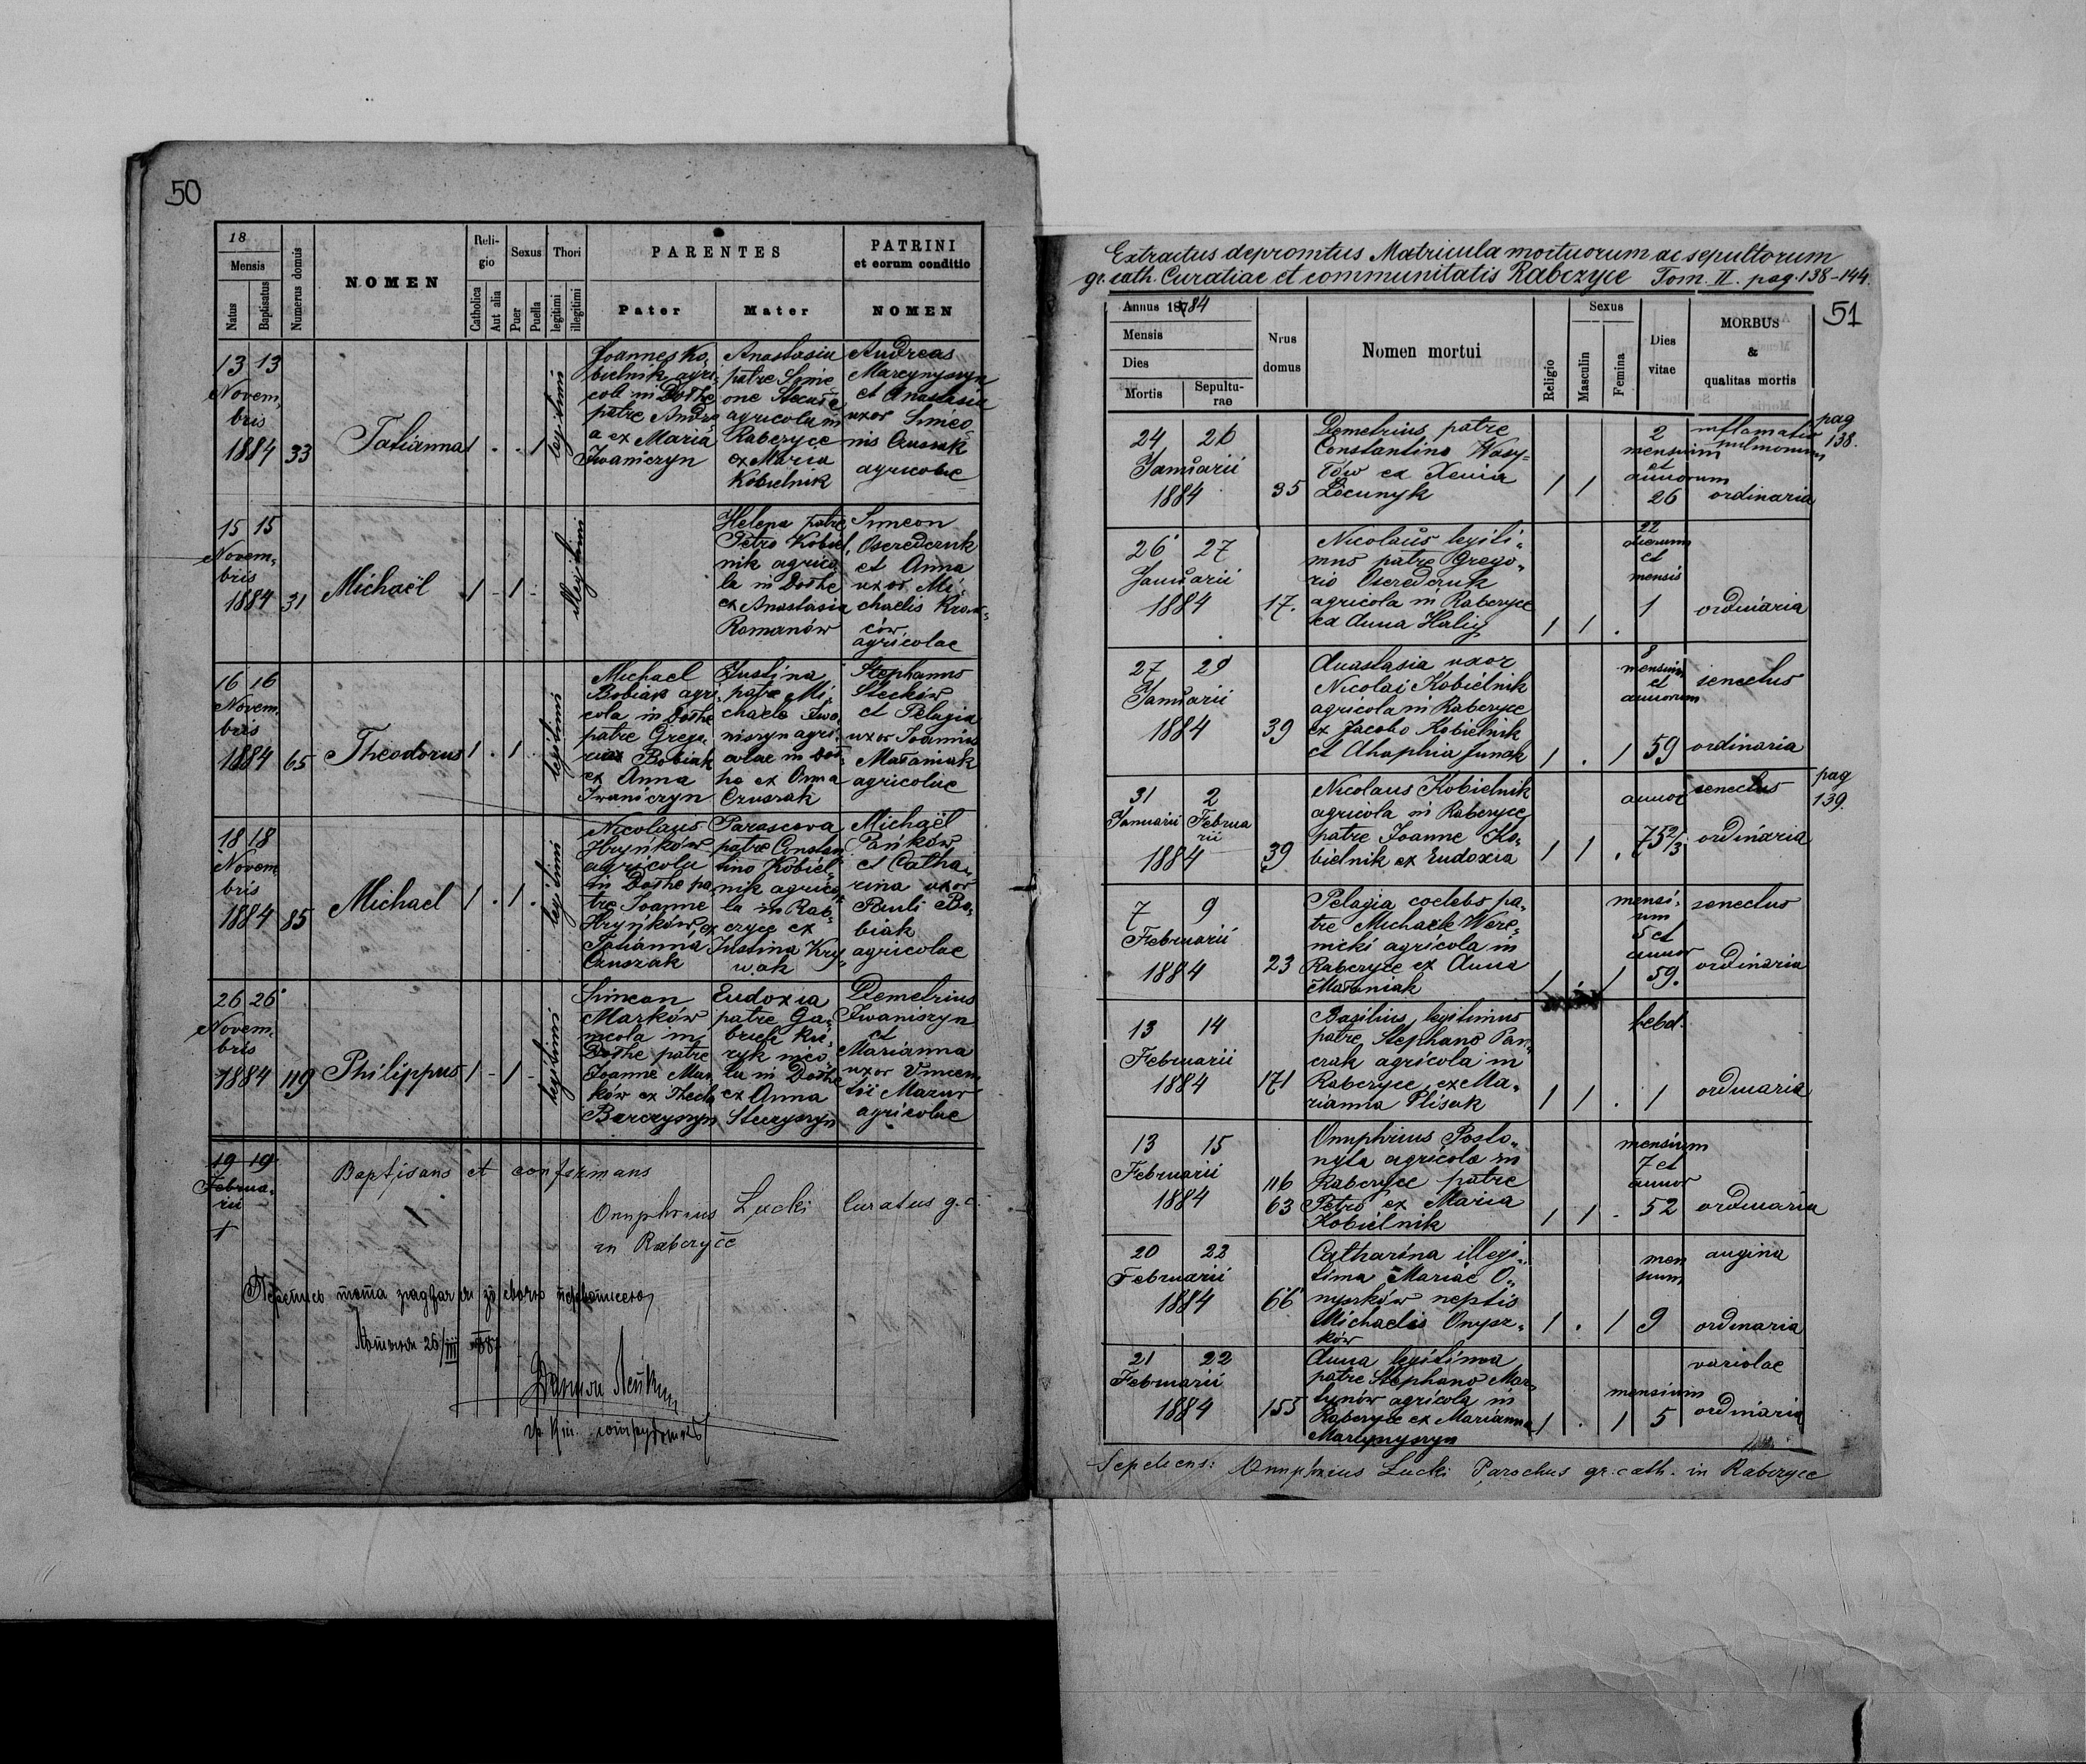 50
18
Mensis
Natus
Baptisatus
Numerus domus
NOMEN
Reli-
gio
Catholica
Aut alia
Sexus
Puer
Puella
Thori
legitimi
illegitimi
PARENTES
Pater
Mater
PATRINI
et eorum conditio
NOMEN
13 13
Novem,
bris
1884
33
Tatianna
1 . . 1
legitimi
Joannes Ko,
bielnik agri,
cola in Dołhe
patre Andre
a ex Maria
Iwaniczyn
Anastasia
patre Sime
one
agricola in
Rabczyce
ex Maria
Kobielnik
Andreas
Marcynyszyn
et Anastasia
uxor Simeo
nis Czuszak
agricolae
15 15
Novem-
bris
1884
31
Michaël
1 - 1 -
illegitimi
Helena patre
Petro Kobiel,
nik agrico,
la in Dołhe
ex Anastasia
Romanów
Simeon
Oseredczuk
et Anna
uxor Mi-
chaelis
ców
agricolae
16 16
Novem.
bris
1884
65
Theodorus
1 . 1 .
legitimi
Michael
Bobiak agri,
cola in Dołhe
patre Grego
rio Bobiak
ex Anna
Iwaniczyn
Justina
patre Mi,
chaele Iwa,
niszyn agri,
colae in Doł-
he ex Anna
Czuszak
Stephanus
Steców
et Pelagia
uxor Joannis
Mataniak
agricolae
18 18
Novem
bris
1884
85
Michael
1 . 1 .
legitimi
Nicolaus
Hryńków
agricola
in Dołhe pa,
tre Joanne
Hryńków, ex
Tatianna
Czuszak
Parascewa
patre Constan
tino Kobiel-
nik agrico,
la in Rab-
czyce ex
Justina Kry,
wak
Michaël
Pańków
et Catha,
rina uxor
Pauli Bo-
biak
agricolae
26 26
Novem-
bris
1884
119
Philippus
1 - 1 -
legitimi
Simeon
Marków
incola in
Dołhe patre
Joanne Mar,
ków ex Thecla
Barczyszyn
Eudoxia
patre Ga-
briele
inco-
la in Dołhe
ex Anna
Stecyszyn
Demetrius
Iwaniszyn
et
Marianna
uxor Vincen
tii Mazur
agricolae
19 19
Februa,
rii
+
Baptisans et confirmans
Onuphrius Lucki Curatus g. c.
in Rabczyce
26/III 887
Extractus depromtus Matricula mortuorum ac sepultorum
gr. cath. Curatiae et communitatis Rabczyce Tom. II. pag. 138-144.
51
Annus 1884
Mensis
Dies
Mortis
Sepultu-
rae
Nrus
domus
Nomen mortui
Religio
Sexus
Masculin
Femina
Dies
vitae
MORBUS
&
qualitas mortis
pag
138.
24 26
Januarii
1884
35
Demetrius patre
Constantino Wasy-
lów ex Xenia
Łocunyk
1 1
2
mensium
et
annorum
26
inflamatio
pulmonum
ordinaria
26 27
Januarii
1884
17.
Nicolaus legiti-
mus patre Grego-
rio Oseredczuk
agricola in Rabczyce
ex Anna Halij
1 1 .
22
dierum
et
mensis
1
ordinaria
27 29
Januarii
1884
39
Anastasia uxor
Nicolai Kobielnik
agricola in Rabczyce
ex Jacobo Kobielnik
et Ahaphia Junak
1 . 1
8
mensium
et
annorum
59
senectus
ordinaria
pag
139.
31 2
Januarii Februa
rii
1884
39
Nicolaus Kobielnik
agricola in Rabczyce
patre Joanne Ko-
bielnik ex Eudoxia
1 1 .
annor
75 2/3
senectus
ordinaria
7 9
Februarii
1884
23
Pelagia coelebs pa-
tre Michaele Were-
nicki agricola in
Rabczyce ex Anna
Mataniak
1 . 1
mensi-
um
5 et
annor
59.
senectus
ordinaria
13 14
Februarii
1884
171
Basilius, legitimus
patre Stephano Pan-
czak agricola in
Rabczyce, ex Ma-
rianna Plisak
1 1 .
hebd.
1
ordinaria
13 15
Februarii
1884
116
63
Onuphrius Posto-
nyla agricola in
Rabczyce patre
Petro ex Maria
Kobielnik
1 1 -
mensium
7 et
annor
52
ordinaria
20 22
Februarii
1884
66
Catharina illegi-
tima Mariae O-
nyszków neptis
Michaelis Onysz-
ków
1 . 1
men
sium
9
angina
ordinaria
21 22
Februarii
1884
155
Anna legitima
patre Stephano Mar-
tynów agricola in
Rabczyce ex Marianna
Marcynyszyn
1 . 1
mensium
5
variolae
ordinaria
Sepeliens: Onuphrius Lucki Parochus gr. cath. in Rabczyce